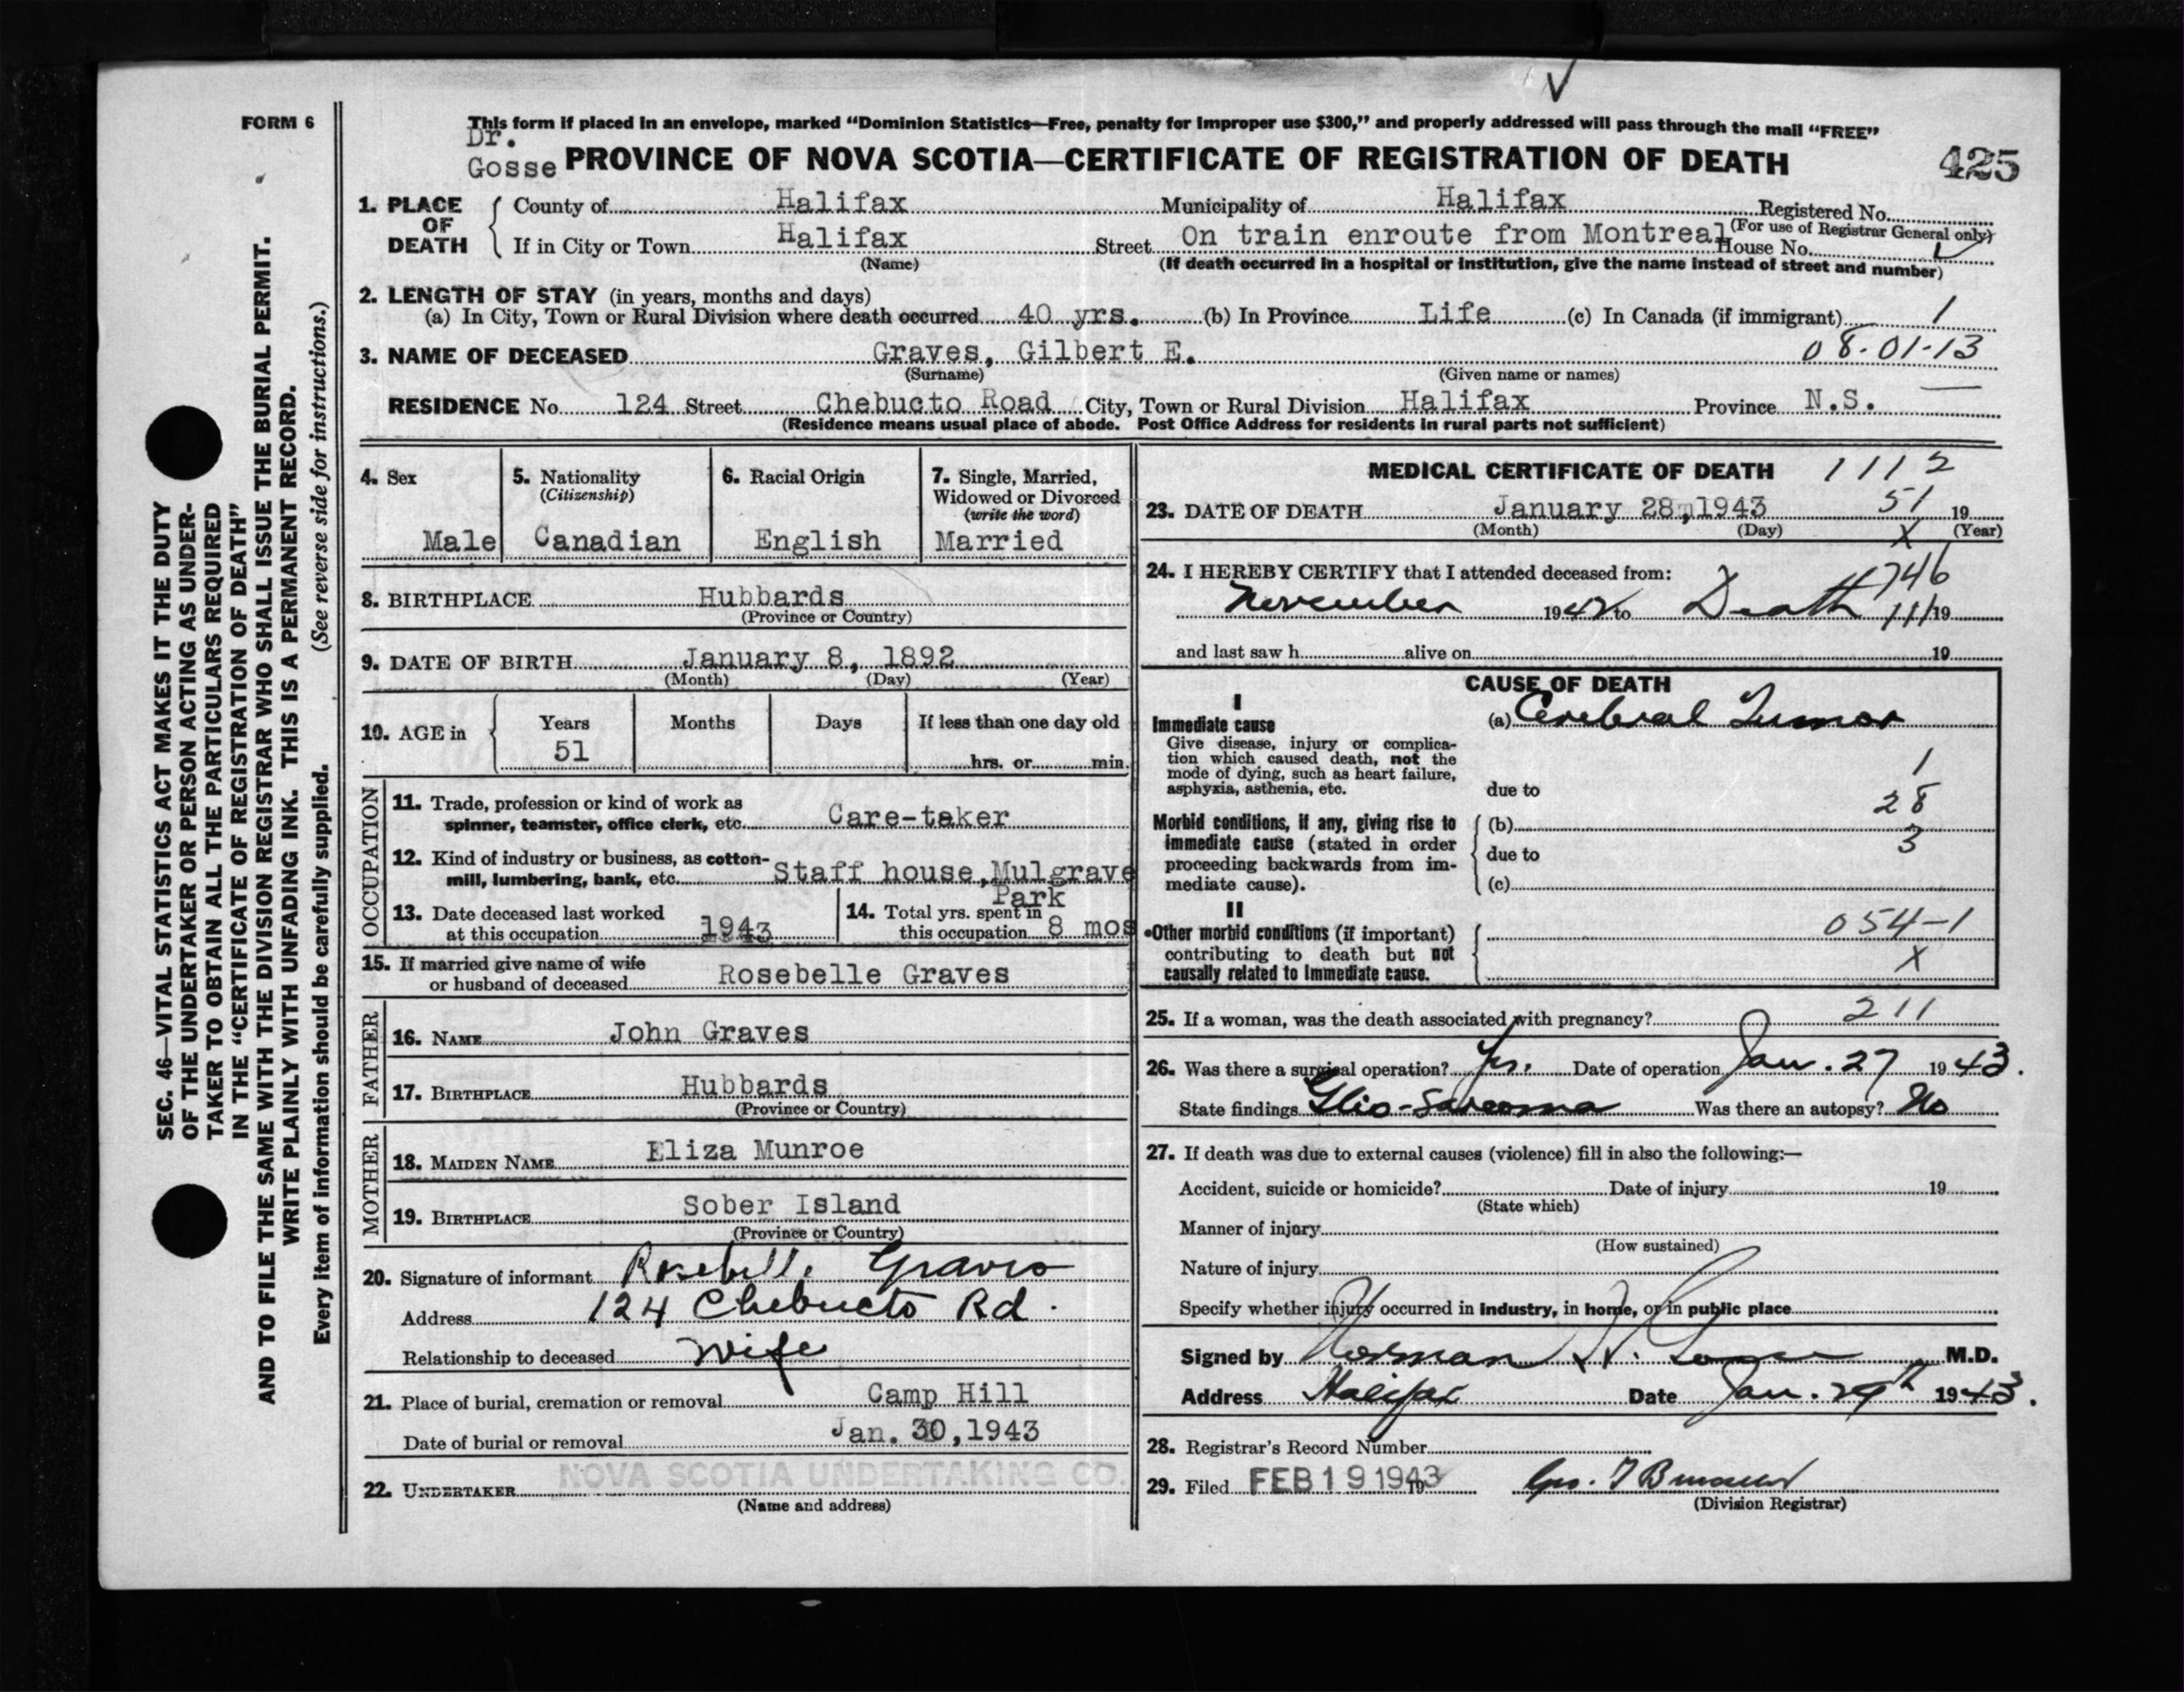 V
FORM 6
This form if placed in an envelope, marked “Dominion Statistics—Free, penalty for improper use $300,” and properly addressed will pass through the mail “FREE”
Dr.
Gosse PROVINCE OF NOVA SCOTIA—CERTIFICATE OF REGISTRATION OF DEATH 425
1. PLACE OF DEATH County of Halifax Municipality of Halifax Registered No.
(For use of Registrar General only)
If in City or Town Halifax Street On train enroute from Montreal House No.
(Name) (If death occurred in a hospital or institution, give the name instead of street and number)
2. LENGTH OF STAY (in years, months and days)
(a) In City, Town or Rural Division where death occurred 40 yrs. (b) In Province Life (c) In Canada (if immigrant) 1
3. NAME OF DECEASED Graves, Gilbert E. 08-01-13
(Surname) (Given name or names)
RESIDENCE No. 124 Street Chebucto Road City, Town or Rural Division Halifax Province N.S.
(Residence means usual place of abode. Post Office Address for residents in rural parts not sufficient)
4. Sex
Male
5. Nationality
(Citizenship)
Canadian
6. Racial Origin
English
7. Single, Married,
Widowed or Divorced
(write the word)
Married
8. BIRTHPLACE Hubbards
(Province or Country)
9. DATE OF BIRTH January 8, 1892
(Month) (Day) (Year)
10. AGE in Years Months Days If less than one day old
51 hrs. or min.
OCCUPATION
11. Trade, profession or kind of work as
spinner, teamster, office clerk, etc. Care-taker
12. Kind of industry or business, as cotton-
mill, lumbering, bank, etc. Staff house, Mulgrave
Park
13. Date deceased last worked
at this occupation 1943
14. Total yrs. spent in
this occupation 8 mos
15. If married give name of wife
or husband of deceased Rosebelle Graves
FATHER
16. NAME John Graves
17. BIRTHPLACE Hubbards
(Province or Country)
MOTHER
18. MAIDEN NAME Eliza Munroe
19. BIRTHPLACE Sober Island
(Province or Country)
20. Signature of informant Rosebelle Graves
Address 124 Chebucto Rd.
Relationship to deceased Wife
21. Place of burial, cremation or removal Camp Hill
Date of burial or removal Jan. 30, 1943
22. UNDERTAKER NOVA SCOTIA UNDERTAKING CO.
(Name and address)
MEDICAL CERTIFICATE OF DEATH 1112
23. DATE OF DEATH January 28, 1943 51 19
(Month) (Day) X (Year)
24. I HEREBY CERTIFY that I attended deceased from: 746
November 1942 to Death 111 19
and last saw h alive on 19
CAUSE OF DEATH
I
Immediate cause (a) Cerebral Tumor
Give disease, injury or complica-
tion which caused death, not the
mode of dying, such as heart failure,
asphyxia, asthenia, etc. due to
1
28
3
Morbid conditions, if any, giving rise to (b)
immediate cause (stated in order
proceeding backwards from im- due to
mediate cause). (c)
II
Other morbid conditions (if important) 054-1
contributing to death but not
causally related to immediate cause. X
25. If a woman, was the death associated with pregnancy? 211
26. Was there a surgical operation? Yes. Date of operation Jan. 27 1943.
State findings Glio-sarcoma Was there an autopsy? No
27. If death was due to external causes (violence) fill in also the following:—
Accident, suicide or homicide? Date of injury 19
(State which)
Manner of injury
(How sustained)
Nature of injury
Specify whether injury occurred in industry, in home, or in public place
Signed by Norman H. Gosse M.D.
Address Halifax Date Jan. 29th 1943.
28. Registrar's Record Number
29. Filed FEB 19 1943 19
(Division Registrar)
SEC. 46—VITAL STATISTICS ACT MAKES IT THE DUTY
OF THE UNDERTAKER OR PERSON ACTING AS UNDER-
TAKER TO OBTAIN ALL THE PARTICULARS REQUIRED
IN THE “CERTIFICATE OF REGISTRATION OF DEATH”
AND TO FILE THE SAME WITH THE DIVISION REGISTRAR WHO SHALL ISSUE THE BURIAL PERMIT.
WRITE PLAINLY WITH UNFADING INK. THIS IS A PERMANENT RECORD.
Every item of information should be carefully supplied. (See reverse side for instructions.)